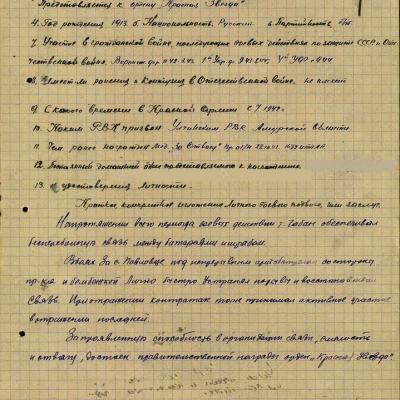 Представляется к орден "Красная Звезда"
4. Год рождения 1913 г. Национальность Русский 6. Партийность б/п
7. Участие в гражданской войне, последующих боевых действиях по защите СССР и Оте-
чественной войне.
8. Имеет ли ранения и контузии в Отечественной войне. Не имеет
9. С какого времени в Красной Армии с 1942г.
10. Каким РВК призван РВК Амурской области
11. Чем ранее награжден Мед. "За Отвагу"
12. Постоянный домашний адрес представляемого к награждению
13. удостоверения личности —
Краткое, конкретное изложение личного боевого подвига, или заслуг.
Напротяжении всего периода боевых действий т. обеспечивал
бесперебойную связь между батареями и штабом.
В боях За с. Павловце под непрерывным артобстрелом со стороны
пр-ка и бомбежкой Лично быстро устранял порывы и восстанавливал
Связь. При отражении контратак тоже принимал активное участие
в отражении последней.
За проявленную способность в организации связи, смелость
и отвагу, достоин правительственной награды орден "Красная Звезда"